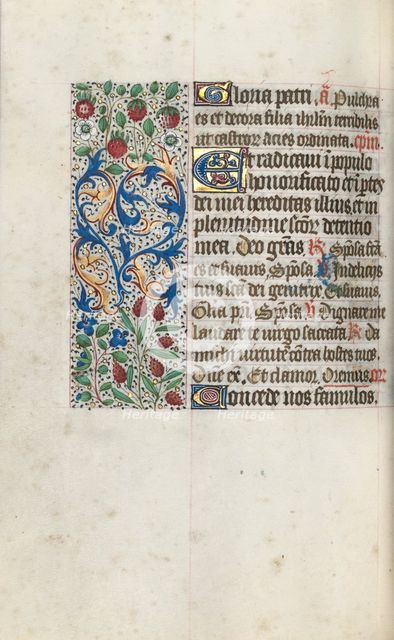 Gloria patri. ā Pulchra
es et decora filia ihrlm̄ terribilis
ut castror̄ acies ordinata. cpm̄.
Et radicaui ī populo
honorificato et ī p̄tes
dei mei hereditas illius et in
plenitudine sc̄or̄ detentio
mea. Deo gr̄as R Sp̄osa
es et suauis. Sp̄osa
tuis sc̄a dei genitrix. Et suauis.
Gl̄ia pr̄i. Sp̄osa V Dignare me
laudare te uirgo sacrata R da
michi uirtutē cōtra hostes tuos.
Dn̄e ex̄. Et clamor. Oremus. or̄.
Concede nos famulos.
Heritage
Heritage